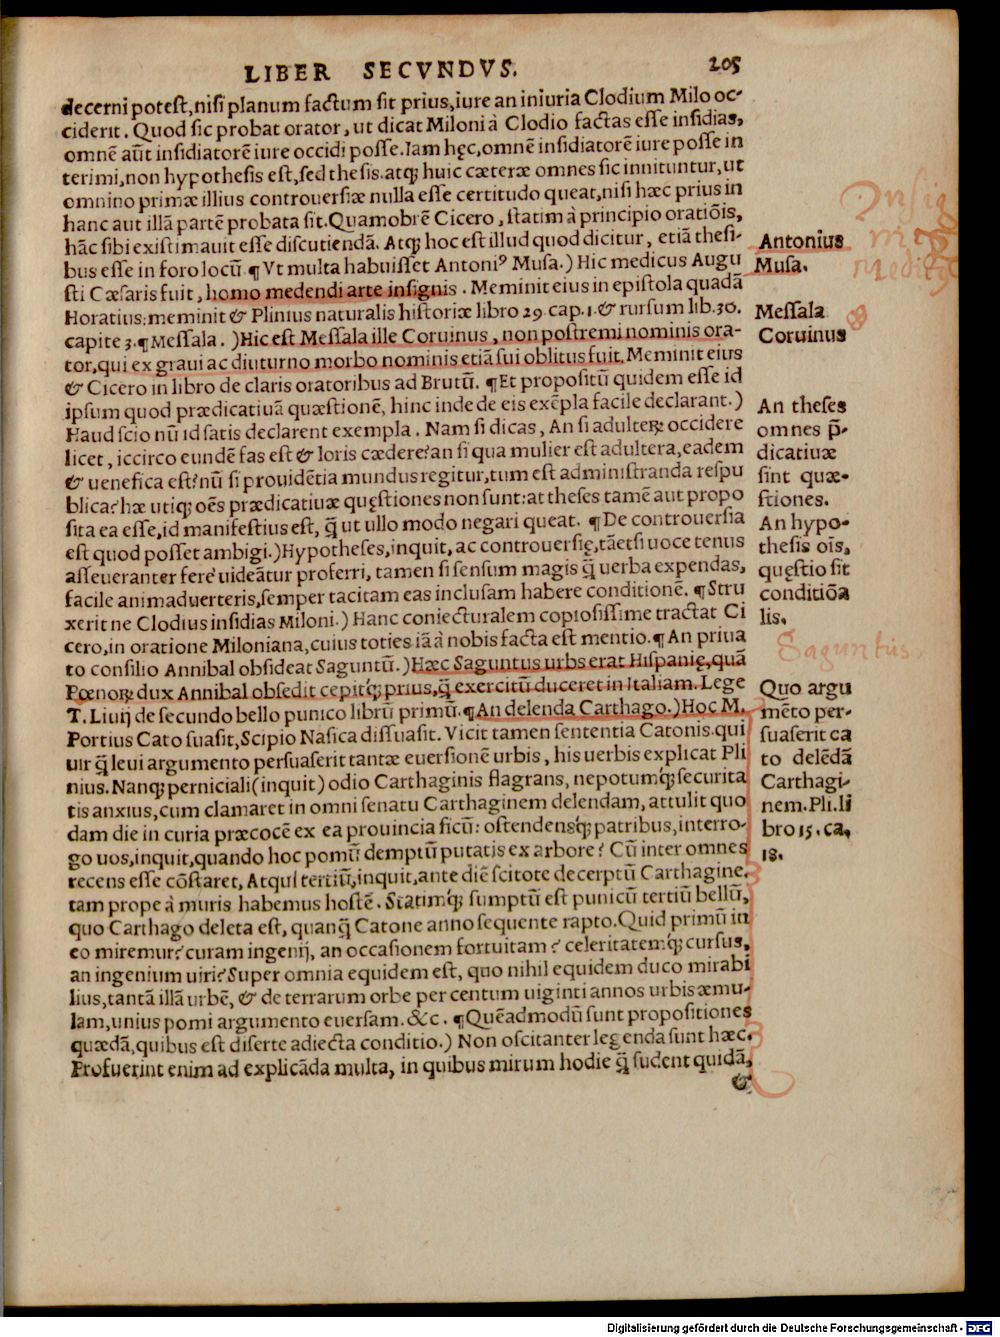 LIBER SECVNDVS. 205
decerni potest,nisi planum factum sit prius,iure an iniuria Clodium Milo oc-
ciderit. Quod sic probat orator, ut dicat Miloni à Clodio factas esse insidias,
omnē aũt insidiatorē iure occidi posse.Iam hęc,omnē insidiatorē iure posse in
terimi,non hypothesis est,sed thesis.atq; huic cæteræ omnes sic innituntur,ut
omnino primæ illius controuersiæ nulla esse certitudo queat,nisi hæc prius in
hanc aut illā partē probata sit.Quamobrē Cicero, statim à principio oratiõis,
hāc sibi existimauit esse discutiendā. Atq; hoc est illud quod dicitur, etiā thesi-
bus esse in foro locũ. ¶ Vt multa habuisset Antoniꝰ Musa.) Hic medicus Augu
sti Cæsaris fuit, homo medendi arte insignis. Meminit eius in epistola quadā
Horatius: meminit & Plinius naturalis historiæ libro 29. cap. 1. & rursum lib. 30.
capite 3. ¶ Messala. ) Hic est Messala ille Coruinus, non postremi nominis ora-
tor,qui ex graui ac diuturno morbo nominis etiā sui oblitus fuit. Meminit eius
& Cicero in libro de claris oratoribus ad Brutũ. ¶ Et propositũ quidem esse id
ipsum quod prædicatiuā quæstionē, hinc inde de eis exēpla facile declarant.)
Haud scio nũ id satis declarent exempla. Nam si dicas, An si adulterꝝ occidere
licet, iccirco eundē fas est & loris cædere? an si qua mulier est adultera, eadem
& uenefica est? nũ si prouidētia mundus regitur,tum est administranda respu
blica? hæ utiq; oēs prædicatiuæ quęstiones non sunt: at theses tamē aut propo
sita ea esse,id manifestius est, q̃ ut ullo modo negari queat. ¶ De controuersia
est quod posset ambigi.) Hypotheses,inquit, ac controuersię,tāetsi uoce tenus
asseueranter fere uideātur proferri, tamen si sensum magis q̃ uerba expendas,
facile animaduerteris,semper tacitam eas inclusam habere conditionē. ¶ Stru
xerit ne Clodius insidias Miloni.) Hanc coniecturalem copiosissime tractat Ci
cero,in oratione Miloniana,cuius toties iā à nobis facta est mentio. ¶ An priua
to consilio Annibal obsideat Saguntũ.) Hæc Saguntus urbs erat Hispanię,quā
Pœnorꝝ dux Annibal obsedit cepitq́; prius,q̃ exercitũ duceret in Italiam. Lege
T. Liuij de secundo bello punico librũ primũ. ¶ An delenda Carthago.) Hoc M.
Portius Cato suasit, Scipio Nasica dissuasit. Vicit tamen sententia Catonis. qui
uir q̃ leui argumento persuaserit tantæ euersionē urbis, his uerbis explicat Pli
nius. Nanq; perniciali (inquit) odio Carthaginis flagrans, nepotumq́; securita
tis anxius,cum clamaret in omni senatu Carthaginem delendam, attulit quo
dam die in curia præcocē ex ea prouincia ficũ: ostendensq́; patribus,interro-
go uos,inquit,quando hoc pomũ demptũ putatis ex arbore? Cũ inter omnes
recens esse cõstaret, Atqui tertiũ,inquit,ante diē scitote decerptũ Carthagine.
tam prope à muris habemus hostē. Statimq́; sumptũ est punicũ tertiũ bellũ,
quo Carthago deleta est, quanq̃ Catone anno sequente rapto. Quid primũ in
eo miremur? curam ingenij, an occasionem fortuitam? celeritatemq́; cursus,
an ingenium uiri? Super omnia equidem est, quo nihil equidem duco mirabi
lius,tantā illā urbē, & de terrarum orbe per centum uiginti annos urbis æmu-
lam,unius pomi argumento euersam. &c. ¶ Quēadmodũ sunt propositiones
quædā,quibus est diserte adiecta conditio.) Non oscitanter legenda sunt hæc.
Profuerint enim ad explicāda multa, in quibus mirum hodie q̃ sudent quidā,
&
Antonius
Musa.
Messala
Coruinus
An theses
omnes p̃-
dicatiuæ
sint quæ-
stiones.
An hypo-
thesis oīs,
quęstio sit
conditiõa
lis.
Saguntus.
Quo argu
mēto per-
suaserit ca
to delēdā
Carthagi-
nem. Pli. li
bro 15. ca.
18.
Digitalisierung gefördert durch die Deutsche Forschungsgemeinschaft - DFG